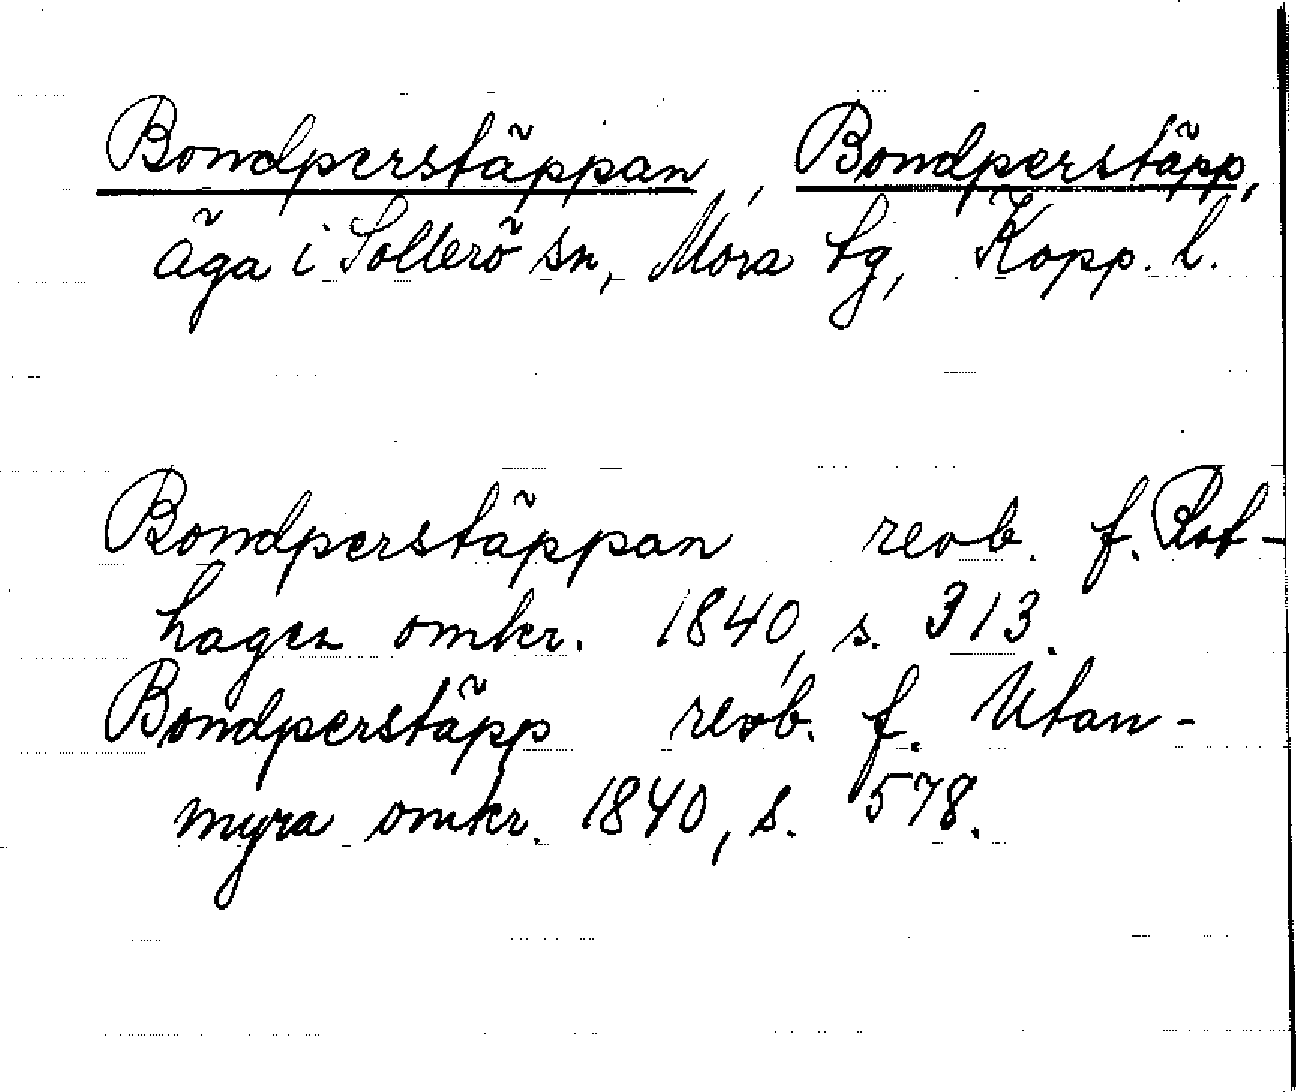 Bondperstäppan, Bondperstäpp,
äga i Sollerö sn, Mora tg, Kopp. l.
Bondperstäppan revb. f. Rot-
hagen omkr. 1840, s. 313.
Bondperstäpp revb. f. Utan-
myra omkr. 1840, s. 578.